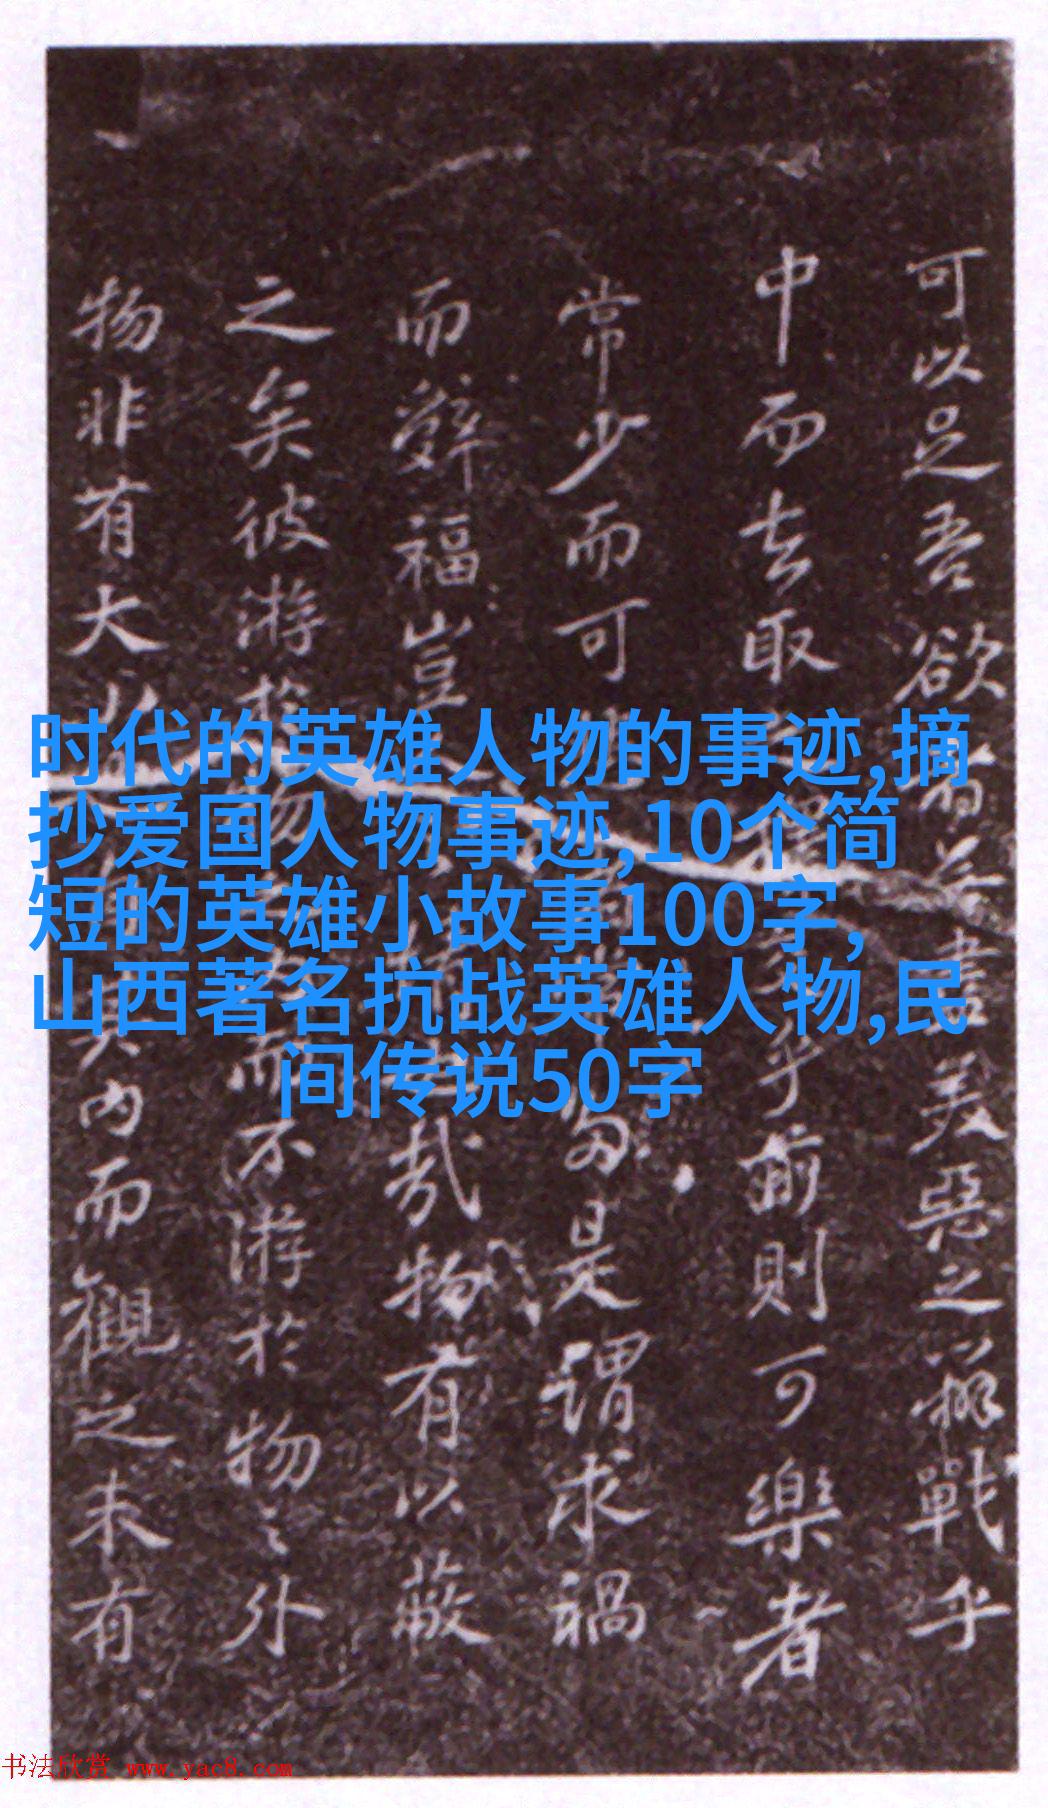 可以足吾欲有盡美惡之辨戰乎
中而去取擇乎前則可樂者
常少而可多是謂求禍
而辭福豈情哉物有以蔽
之矣彼游於物而不游於物之外
物非有大小其内而觀之未有
时代的英雄人物的事迹,摘
抄爱国人物事迹,10个简
短的英雄小故事100字,
山西著名抗战英雄人物,民
间传说50字
书法欣赏 www.yac8.com